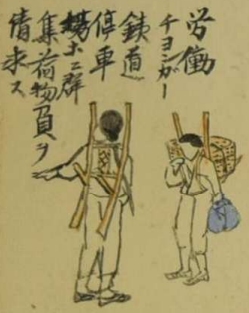 労働
チヨンガー
鉄道
停車
場ニ群
集荷物負ヲ
請求ス